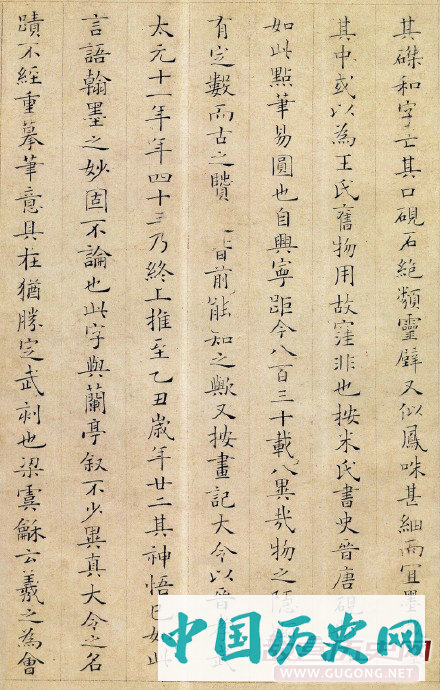 其磔和字亡其口硯石絶類靈壁又似鳳咮甚細而冝墨
其中或以為王氏舊物用故窪非也按米氏書史晉唐硯
如此點筆易圓也自興寧距今八百三十載八異哉物之隱
有定數而古之賢 前能知之歟又按畫記大令以晉 武
太元十一年年四十三乃終上推至乙丑歳年廿二其神悟已如此
言語翰墨之妙固不論也此字與蘭亭叙不少異真大令之名
蹟不經重摹筆意具在猶勝定武刻也梁虞龢云羲之為會
中国历史网
WWW.GUGONG.NET